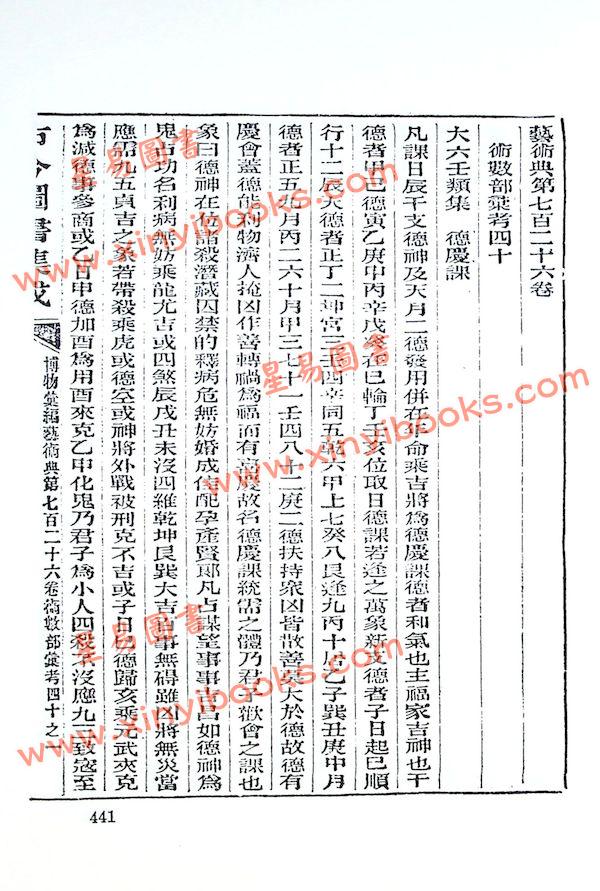 藝術典第七百二十六卷
術數部彙考四十
大六壬類集　德慶課
凡課日辰干支德神及天月二德發用併在年命乘吉將為德慶課德者和氣也主福家吉神也干
德者甲己德寅乙庚申丙辛戊癸在巳輪丁壬亥位取日德課若逢之萬象新支德者子日起巳順
行十二辰天德者正丁二坤宮三壬四辛同五乾六甲上七癸八艮逢九丙十居乙子巽丑庚中月
德者正五九月丙二六十月甲三七十一壬四八十二庚二德扶持眾凶皆散善莫大於德故德有
慶會蓋德能利物濟人掩凶作善轉禍為福而有喜慶故名德慶課統需之體乃君子歡會之課也
象曰德神在位諸殺潛藏囚禁的釋病危無妨婚成佳配孕產賢郎凡占謀望事事吉昌如德神為
鬼占功名利病無妨乘龍尤吉或四煞辰戌丑未沒四維乾坤艮巽大吉百事無碍雖凶將無災當
應需九五貞吉之象若帶殺乘虎或德空或神將外戰被刑克不吉或子日巳德歸亥乘元武夾克
為減德事參商或乙日申德加酉為用酉來克乙甲化鬼乃君子為小人四殺不沒應九三致寇至
古今圖書集成
博物彙編藝術典第七百二十六卷術數部彙考四十之一
441
星易圖書
www.xinyibooks.com
星易圖書
www.xinyibooks.com
星易圖書
www.xinyibooks.com